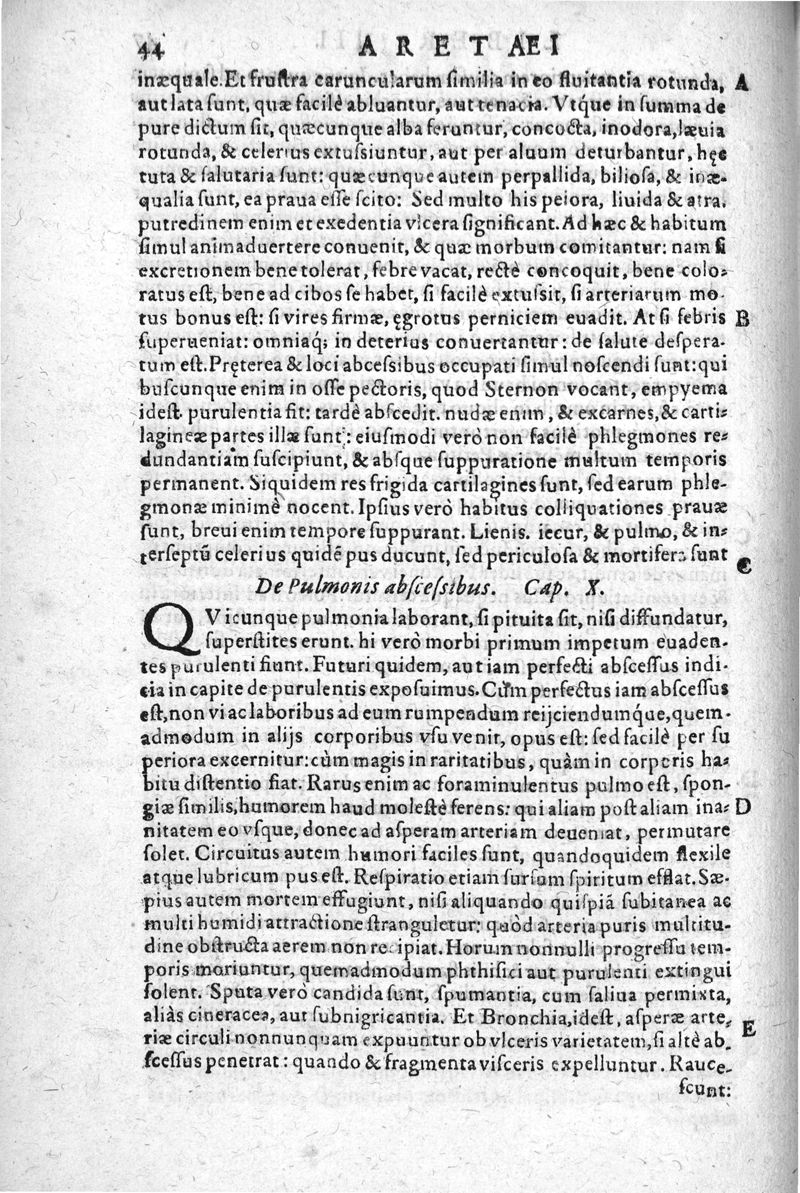 44 ARETÆI
inæquale. Et frustra caruncularum similia in eo fluitantia rotunda, A
aut lata sunt, quæ facilè abluantur, aut tenacia. Vtq́ue in summa de
pure dictum sit, quæcunque alba feruntur, concocta, inodora, læuia
rotunda, & celerius extussiuntur, aut per aluum deturbantur, hęc
tuta & salutaria sunt: quæcunque autem perpallida, biliosa, & inæ-
qualia sunt, ea praua esse scito: Sed multo his peiora, liuida & atra,
putredinem enim et exedentia vlcera significant. Ad hæc & habitum
simul animaduertere conuenit, & quæ morbum comitantur: nam si
excretionem bene tolerat, febre vacat, rectè concoquit, bene colo-
ratus est, bene ad cibos se habet, si facilè extussit, si arteriarum mo-
tus bonus est: si vires firmæ, ęgrotus perniciem euadit. At si febris B
superueniat: omniaq́; in deterius conuertantur: de salute despera-
tum est. Pręterea & loci abcessibus occupati simul noscendi sunt: qui
buscunque enim in osse pectoris, quod Sternon vocant, empyema
idest purulentia fit: tardè abscedit. nudæ enim, & excarnes, & carti-
lagineæ partes illæ sunt: eiusmodi verò non facilè phlegmones re-
dundantiam suscipiunt, & absque suppuratione multum temporis
permanent. Siquidem res frigida cartilagines sunt, sed earum phle-
gmonæ minimè nocent. Ipsius verò habitus colliquationes prauæ
sunt, breui enim tempore suppurant. Lienis. iecur, & pulmo, & in-
terseptū celerius quidē pus ducunt, sed periculosa & mortifera sunt C
De Pulmonis abscessibus. Cap. X.
QVicunque pulmonia laborant, si pituita sit, nisi diffundatur,
superstites erunt. hi verò morbi primum impetum euaden-
tes purulenti fiunt. Futuri quidem, aut iam perfecti abscessus indi-
cia in capite de purulentis exposuimus. Cùm perfectus iam abscessus
est, non vi ac laboribus ad eum rumpendum reijciendumq́ue, quem-
admodum in alijs corporibus vsu venit, opus est: sed facilè per su
periora excernitur: cùm magis in raritatibus, quàm in corporis ha-
bitu distentio fiat. Rarus enim ac foraminulentus pulmo est, spon-
giæ similis, humorem haud molestè ferens: qui aliam post aliam ina- D
nitatem eo vsque, donec ad asperam arteriam deueniat, permutare
solet. Circuitus autem humori faciles sunt, quandoquidem flexile
atque lubricum pus est. Respiratio etiam sursum spiritum efflat. Sæ-
pius autem mortem effugiunt, nisi aliquando quispiā subitanea ac
multi humidi attractione stranguletur: quòd arteria puris multitu-
dine obstructa aerem non recipiat. Horum nonnulli progressu tem-
poris moriuntur, quemadmodum phthisici aut purulenti extingui
solent. Sputa verò candida sunt, spumantia, cum saliua permixta,
aliàs cineracea, aut subnigricantia. Et Bronchia, idest, asperæ arte-
riæ circuli nonnunquam expuuntur ob vlceris varietatem, si altè ab- E
scessus penetrat: quando & fragmenta visceris expelluntur. Rauce-
scunt: